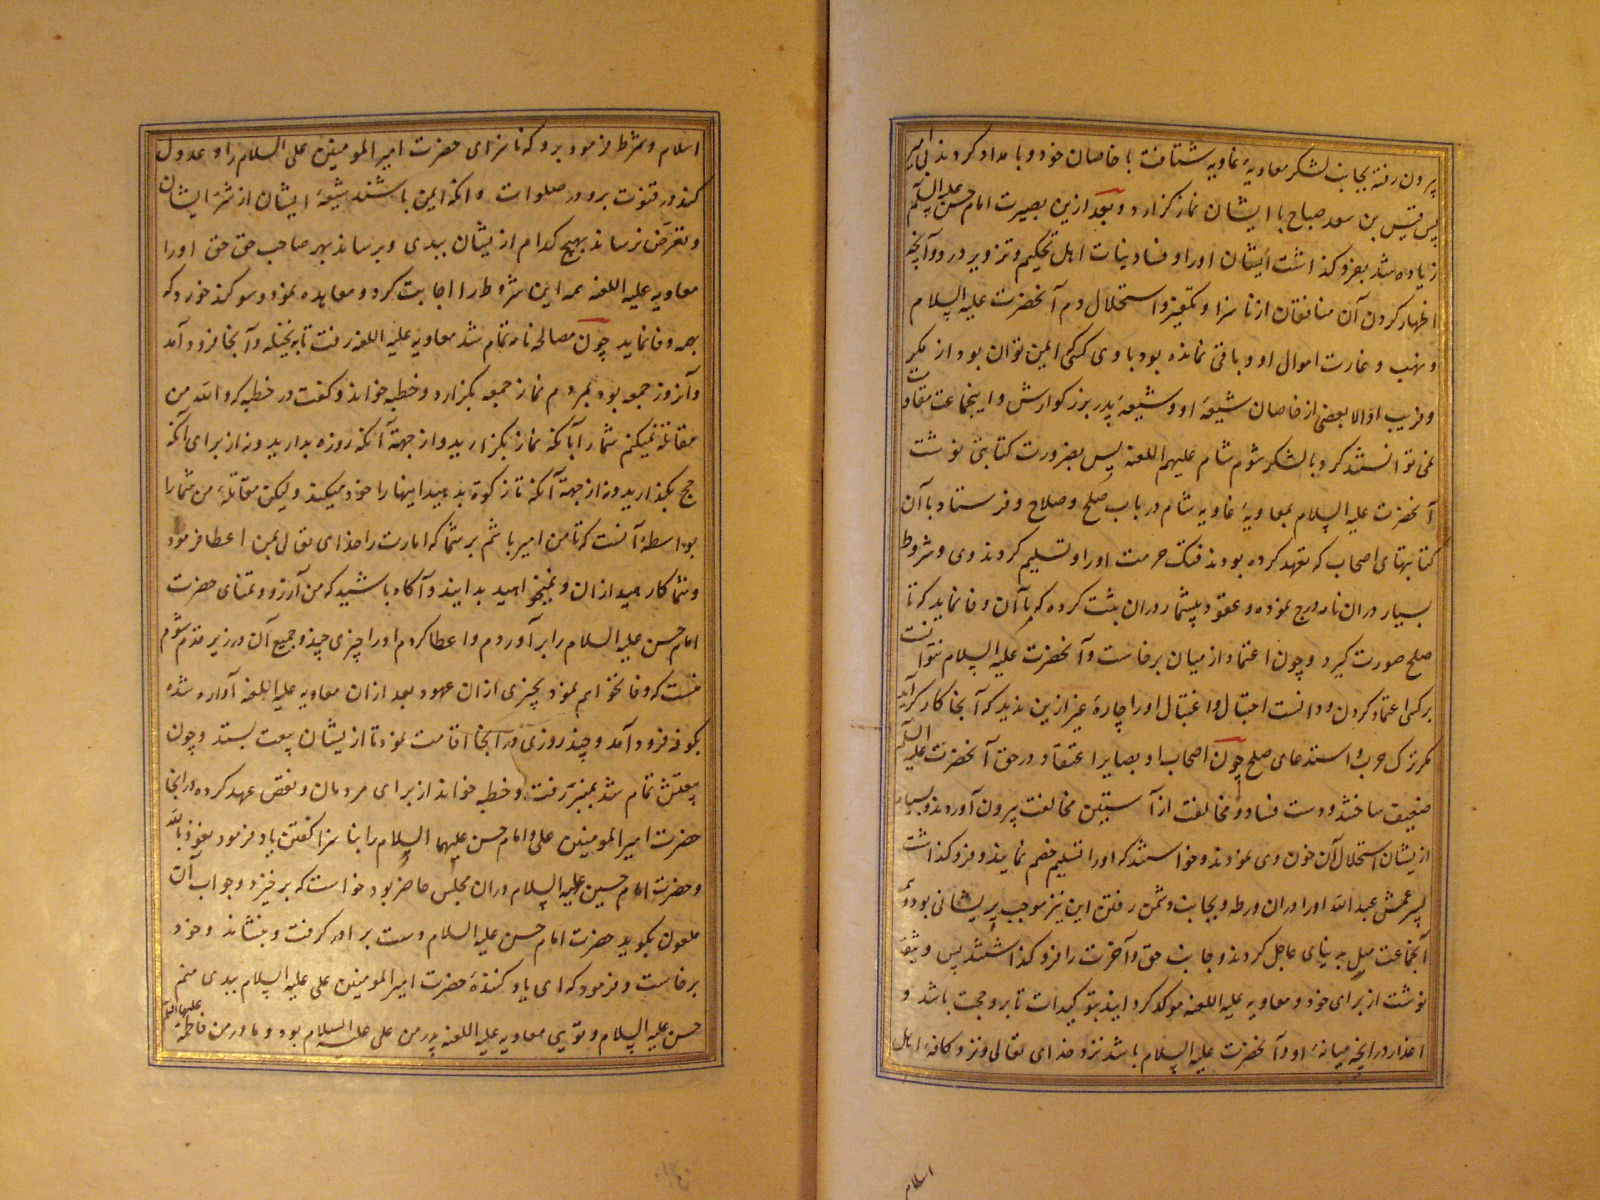 بیرون رفته بجانب لشکر معاویهٔ غاویه شتافت با خاصان خود و بامداد کردند بی امیر
پس قیس بن سعد صباح با ایشان نماز گزارد و بعد ازین بصیرت امام حسن علیه السلام
زیاده شد بفرو گذاشت ایشان او را و فساد نیات اهل تحکیم و تزویر در وی و آنچه
اظهار کردن آن منافقان از ناسزا و تکفیر و استحلال دم آنحضرت علیه السلام
و نهب و غارت اموال او و باقی نمانده بود با وی کسی که ایمن توان بود از مکر
و فریب او الا بعضی از خاصان شیعهٔ او و شیعهٔ پدر بزرگوارش و اینجماعت مقاومت
نمی توانستند کرد با لشکر شوم شام علیهم اللعنه پس بضرورت کتابتی نوشت
آنحضرت علیه السلام بمعاویهٔ غاویه شام در باب صلح و صلاح و فرستاد با آن
کتابتهای اصحاب که تعهد کرده بودند فتک حرمت او را و تسلیم کردند وی و شروط
بسیار در آن نامه درج نموده و عقود بیشمار در آن ثبت کرده که با آن وفا نماید که تا
صلح صورت گیرد و چون اعتماد از میان برخاست و آنحضرت علیه السلام نتوانست
بر کسی اعتماد کردن و دانست احتیال و اغتیال او را چارهٔ غیر ازین ندید که آنجا کار گر آید
مگر ترک حرب و استدعای صلح چون اصحاب او بصایر اعتقاد در حق آنحضرت علیه السلام
ضعیف ساختند و دست فساد و مخالفت از آستین مخالفت بیرون آوردند و بسیار
ازیشان استحلال آن خون وی نمودند و خواستند که او را تسلیم خصم نمایند و فرو گذاشت
پسر عمش عبد الله او را در آن ورطه و بجانب دشمن رفتن این نیز موجب پریشانی بود و
آنجماعت میل بدنیای عاجل کردند و جانب حق و آخرت را فرو گذاشتند پس وثیقه
نوشت از برای خود و معاویه علیه اللعنه موکد کردانید بتوکیدات تا برو حجت باشد و
اعذار در آنچه میانهٔ او و آنحضرت علیه السلام باشد نزد خدای تعالی و نزد کافهٔ اهل
اسلام
اسلام و شرط فرمود برو که ناسزای حضرت امیر المومنین علی السلام را و عدول
کند در قنوت برو در صلوات و آنکه ایمن باشند شیعهٔ ایشان از شر ایشان
و تعرض نرساند بهیچ کدام ازیشان ببدی و برساند بهر صاحب حق حق او را
معاویه علیه اللعنه همه این شروط را اجابت کرد و معاهده نمود و سوگند خورد که
بهمه وفا نماید چون مصالحه نامه تمام شد معاویه علیه اللعنه رفت تا به نخیله و آنجا فرود آمد
و آنروز جمعه بود بمردم نماز جمعه بگزارد و خطبه خواند و گفت در خطبه که والله من
مقاتله نمیکنم شما را با آنکه نماز بگزارید و از جهة آنکه روزه بدارید و نه از برای آنکه
حج بگذارید و نه از جهة آنکه تا زکوة بدهید اینها را خود میکنید ولیکن مقاتلهٔ من شما را
بواسطهٔ آنست که تا من امیر باشم بر شما که امارت را خدای تعالی بمن اعطا فرمود
و شما کارهید از آن و نمیخواهید بدانید و آگاه باشید که من آرزو و تمنای حضرت
امام حسن علیه السلام را بر آوردم و اعطا کردم او را چیزی چند و جمیع آن در زیر قدم شوم
منست که وفا نخواهم نمود بچیزی از آن عهود بعد از آن معاویه علیه اللعنه آواره شده
بکوفه فرود آمد و چند روزی در آنجا اقامت نمود تا ازیشان بیعت بستد و چون
بیعتش تمام شد بمنبر رفت و خطبه خواند از برای مردمان و نقض عهد کرده در آنجا
حضرت امیر المومنین علی و امام حسن علیهما السلام را بناسزا گفتن یاد فرمود نعوذ بالله
و حضرت امام حسین علیه السلام در آن مجلس حاضر بود خواست که برخیزد و جواب آن
ملعون بگوید حضرت امام حسن علیه السلام دست برادر گرفت و بنشاند و خود
برخاست و فرمود که ای یاد کنندهٔ حضرت امیر المومنین علی علیه السلام ببدی منم
حسن علیه السلام و تویی معاویه علیه اللعنه پدر من علی علیه السلام بود و مادر من فاطمه علیها السلام